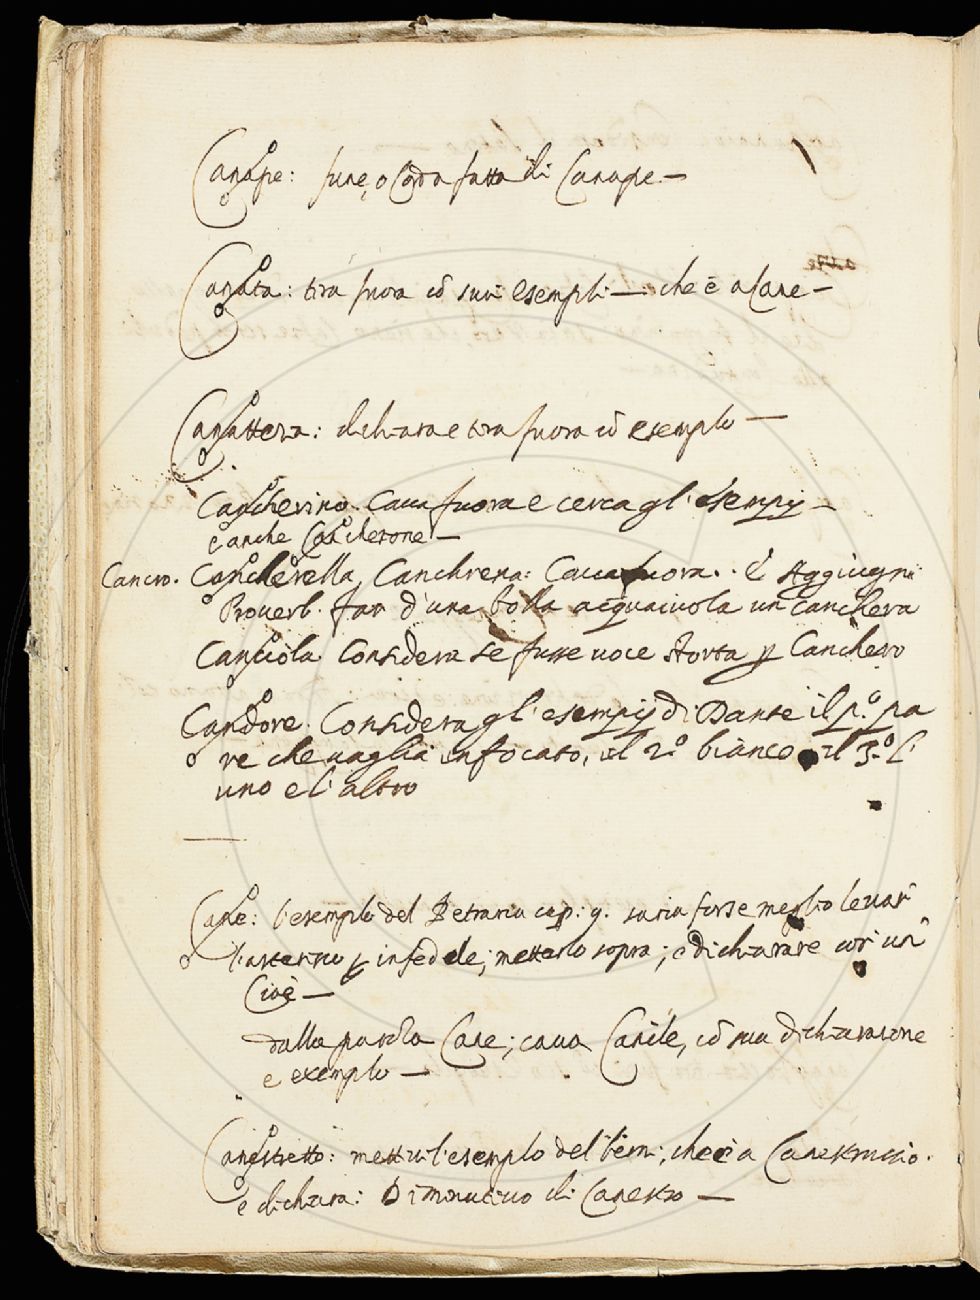 Canape: fune, o Corda fatta di Canape —
Canata: tira fuora cō suoi esempli — che è a Cane —
Canattera: dichiara e tira fuora cō esemplo —
Cancherino. Cava fuora e cerca gl'esempij —
e anche Cancherone —
Cancro. Cancherella, Canchrena: Cava fuora. È Aggiugni
Proverb. Far d'una bolla acquaiuola un canchero
Canciola Considera se fusse voce storta p Canchero
Candore. Considera gl'esempij di Dante il p.º pa
re che vaglia infocato, il 2º bianco il 3º l'
uno e l'altro
Cane: l'esemplo del Petrarca cap: 9. saria forse meglio levar
l'asterisco p infedele; metterlo sopra; e dichiarare cosi un
Cioè —
dalla parola Cane; cava Canile, cō sua dichiarazione
e exemplo —
Canestretto: mettivi l'esemplo del bern:, che è a Canestruccio.
e dichiara: Diminutivo di Canestro —